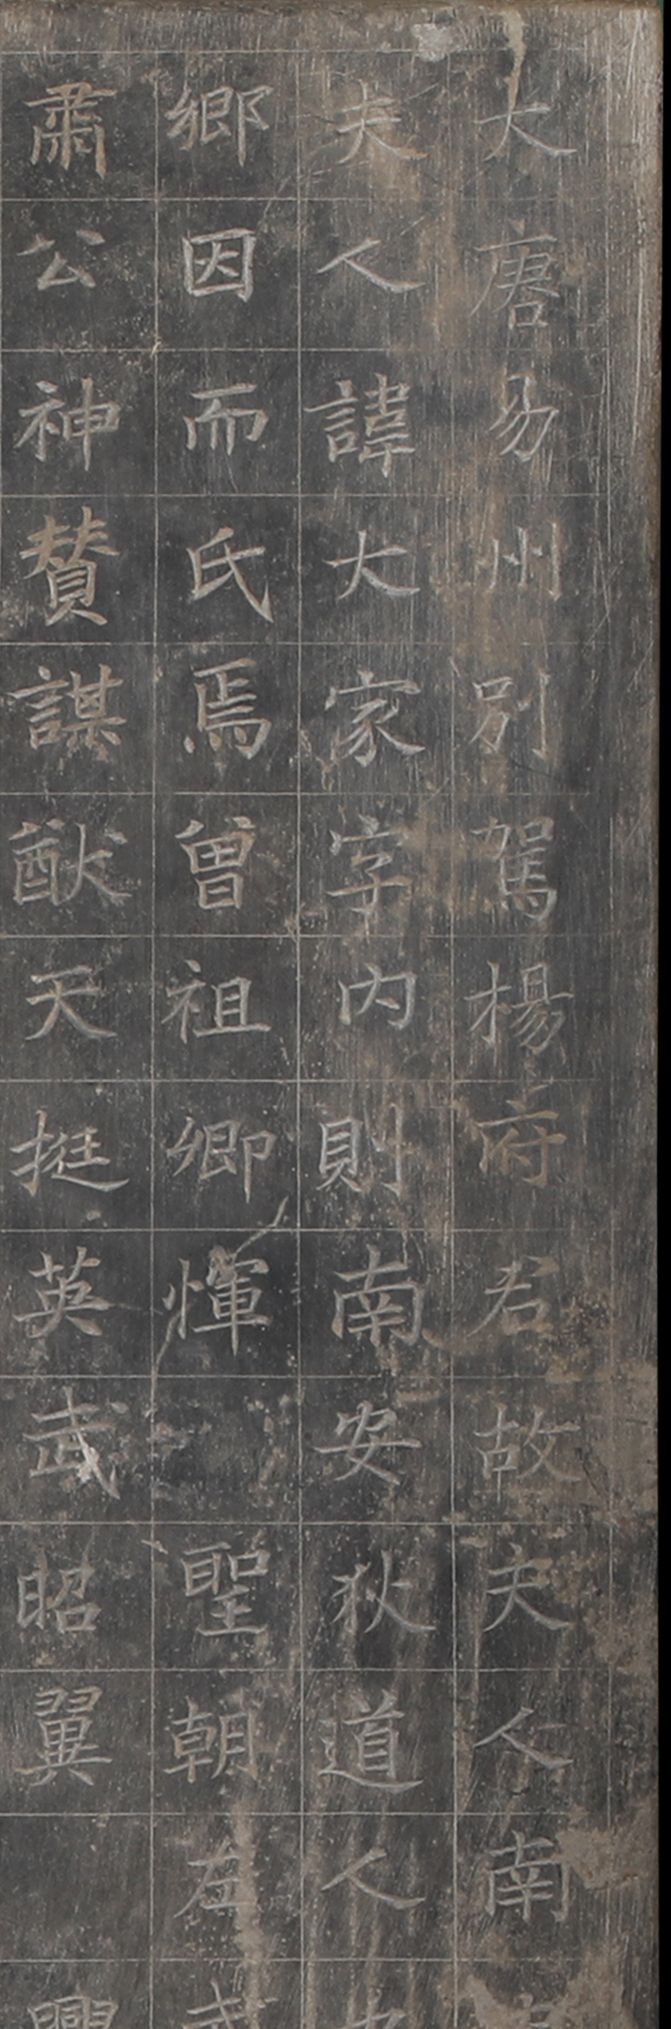 大唐易州別駕楊府君故夫人南
夫人諱大家字內則南安狄道人
鄉因而氏焉曾祖卿惲聖朝左武
肅公神贊謀猷天挺英武昭翼興